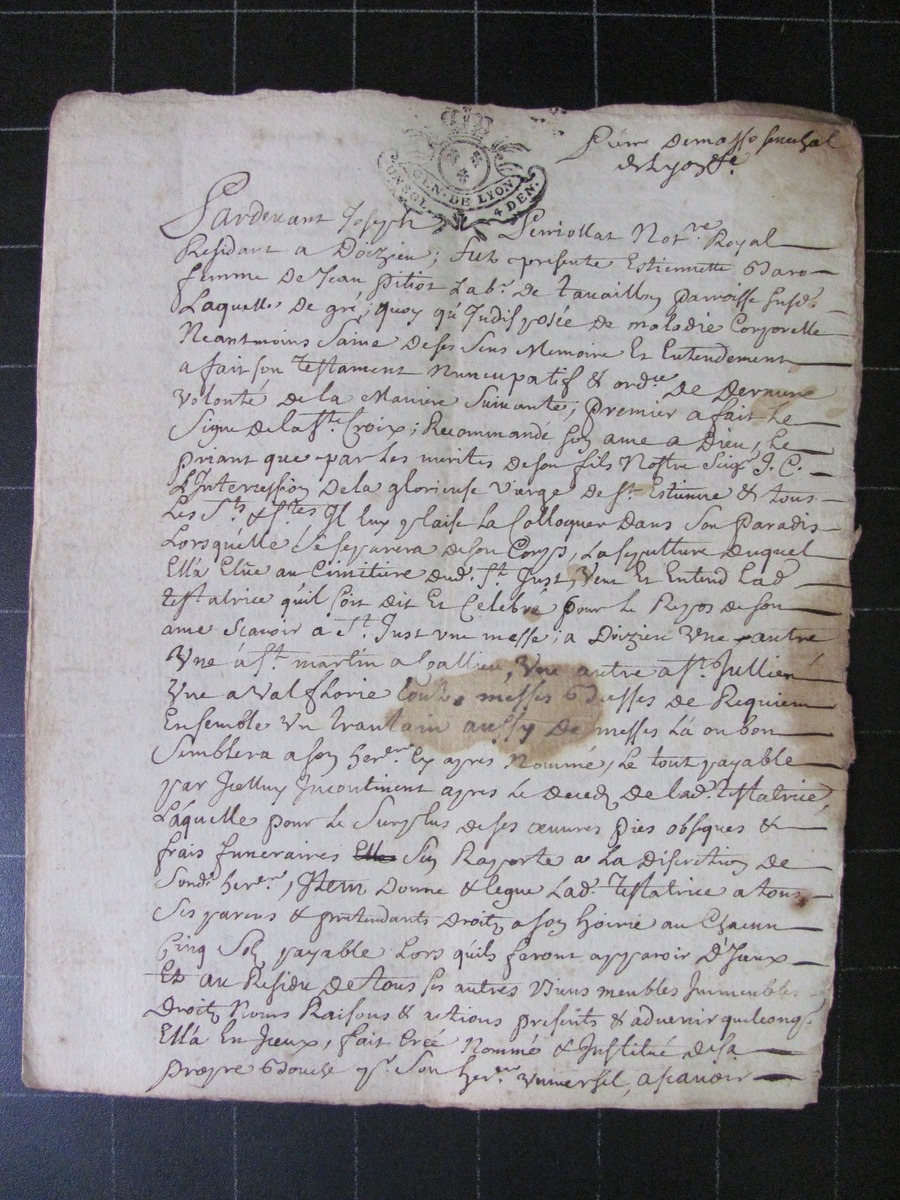 Pierre Demasso senechal
de Lyon &c.
GEN. DE LYON
UN SOL. 4 DEN.
Pardevant Joseph Perriollat Not.re Royal
Residant a Doizieu; fut presente Estiennette
femme De Jean pitiot Lab.r de tavaillon parroisse susd.
Laquelle De gré, quoy qu'Indisposée de maladie Corporelle
Neantmoins Saine De ses Sens Memoire Et Entendement
a fait son testament Nuncupatif & ord.ce De Derniere
volonté de la Maniere Suivante; premier a fait Le
Signe de la S.te Croix; Recommandé son ame a Dieu, Le
priant que par les merites de son fils Nostre Seig.r J. C.
L'Intercession De la glorieuse vierge de S.t Estienne & tous
Les S.ts & S.tes Il luy plaise La Colloquer Dans Son Paradis
Lorsquelle Se separera de son Corps, La sepulture duquel
Ella Elüe au Cimitiere dud. S.t Just, Veut Et Entend Lad.
testatrice qu'il soit dit Et Celebré pour le Repos de son
ame Scavoir a S.t Just vne messe; a Doizieu Vne autre
Vne à S.t martin a Coallieu, Vne autre a S.t Jullien
Vne a Valflorie toutes messes basses de Requiem
Ensemble Vn trantain aussy De messes Là ou bon
Semblera a son her.er Cy apres Nommé, Le tout payable
par Icelluy Incontinent apres Le Deced de lad. testatrice,
Laquelle pour Le Surplus de ses œuvres pies obseques &
frais funeraires Elle S'en Raporte a La discretion De
Sond. her.er, Item Donne & legue Lad. testatrice a tous
Ses parens & pretendants Droits a son hoirie au Chacun
Cinq Sols payable Lors qu'ils feront apparoir D'Iceux
Et au Residu De tous ses autres Biens meubles Immeubles
Droits Noms Raisons & actions presents & advenir quelconq.
Ella En Iceux, fait Creé Nommé & Institué de sa
propre Bouche p.r Son her.er Vniversel, ascavoir